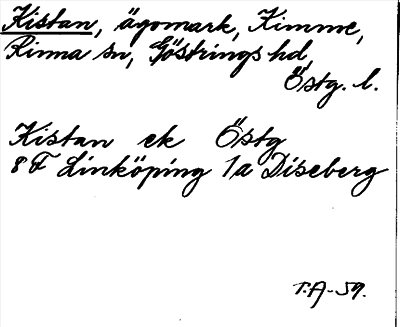 Kistan, ägomark, Kimme,
Rinna sn, Göstrings hd,
Östg. l.
Kistan ek Östg
8 F Linköping 1a Diseberg
T.A-59.